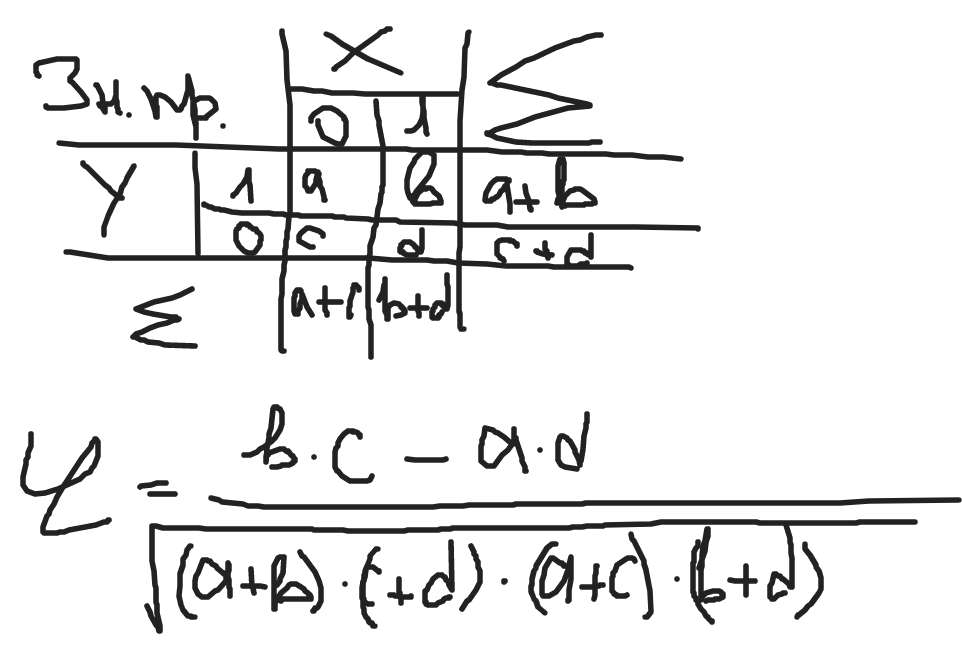 Зн. пр. X Σ
0 1
Y 1 a b a+b
0 c d c+d
Σ a+c b+d
φ = b·c − a·d
√(a+b)·(c+d)·(a+c)·(b+d)